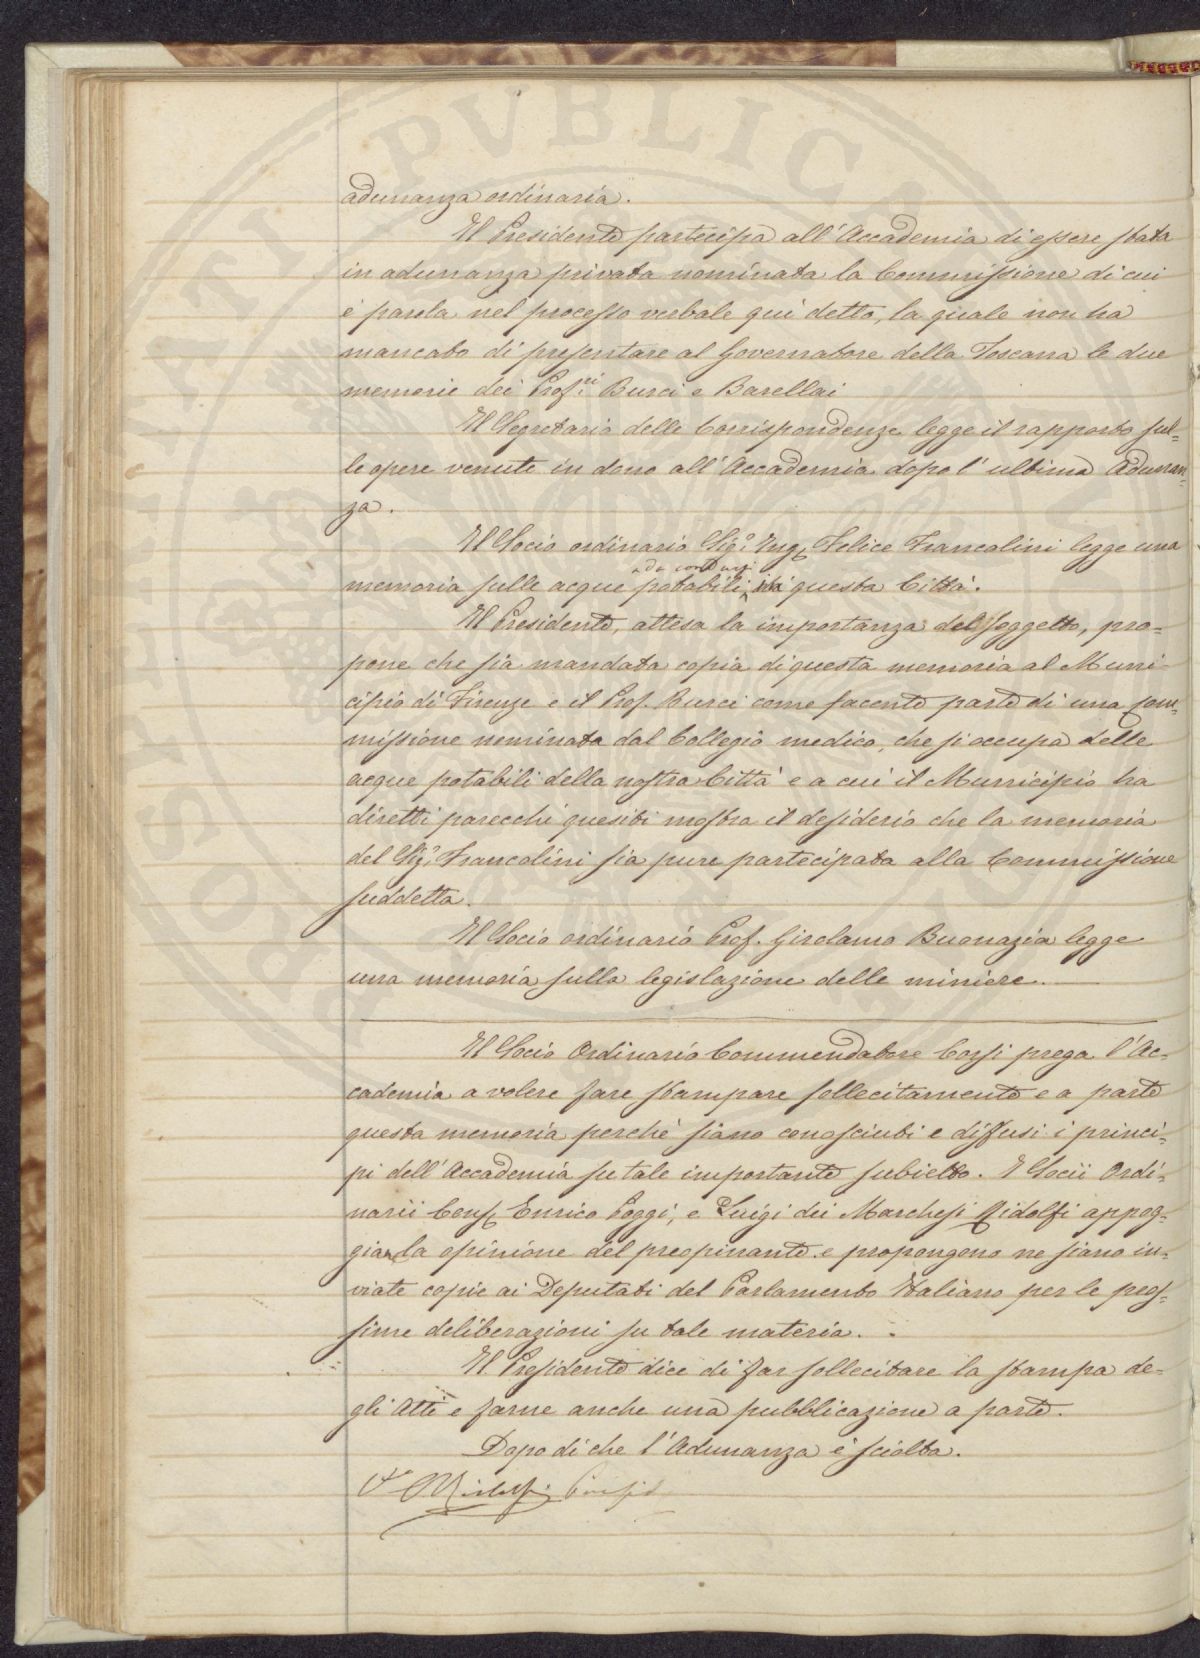 adunanza ordinaria.
Il Presidente partecipa all'Accademia di essere stata
in adunanza privata nominata la Commissione di cui
è parola nel processo verbale qui detto, la quale non ha
mancato di presentare al Governatore della Toscana le due
memorie dei Prof.ri Burci e Barellai
Il Segretario delle Corrispondenze legge il rapporto sul=
le opere venute in dono all'Accademia dopo l'ultima Adunan=
za.
Il Socio ordinario Sig.r Ing. Felice Francolini legge una
da condursi
memoria sulle acque potabili in questa Città.
Il Presidente, attesa la importanza del soggetto, pro=
pone che sia mandata copia di questa memoria al Muni=
cipio di Firenze e il Prof. Burci come facente parte di una Com=
missione nominata dal Collegio medico, che si occupa delle
acque potabili della nostra Città e a cui il Municipio ha
diretti parecchi quesiti mostra il desiderio che la memoria
del Sig.r Francolini sia pure partecipata alla Commissione
suddetta.
Il Socio ordinario Prof. Girolamo Buonazia legge
una memoria sulla legislazione delle miniere.
Il Socio Ordinario Commendatore Corsi prega l'Ac=
cademia a volere fare stampare sollecitamente e a parte
questa memoria perchè siano conosciuti e diffusi i princi=
pi dell'Accademia su tale importante subietto. I Socii Ordi=
narii Cons. Enrico Poggi, e Luigi dei Marchesi Ridolfi appog=
gian la opinione del preopinante e propongono ne siano in=
viate copie ai Deputati del Parlamento Italiano per le pros=
sime deliberazioni su tale materia.
Il Presidente dice di far sollecitare la stampa de=
gli Atti e farne anche una pubblicazione a parte.
Dopo di che l'Adunanza è sciolta.
Ridolfi Presid
PVBLICO